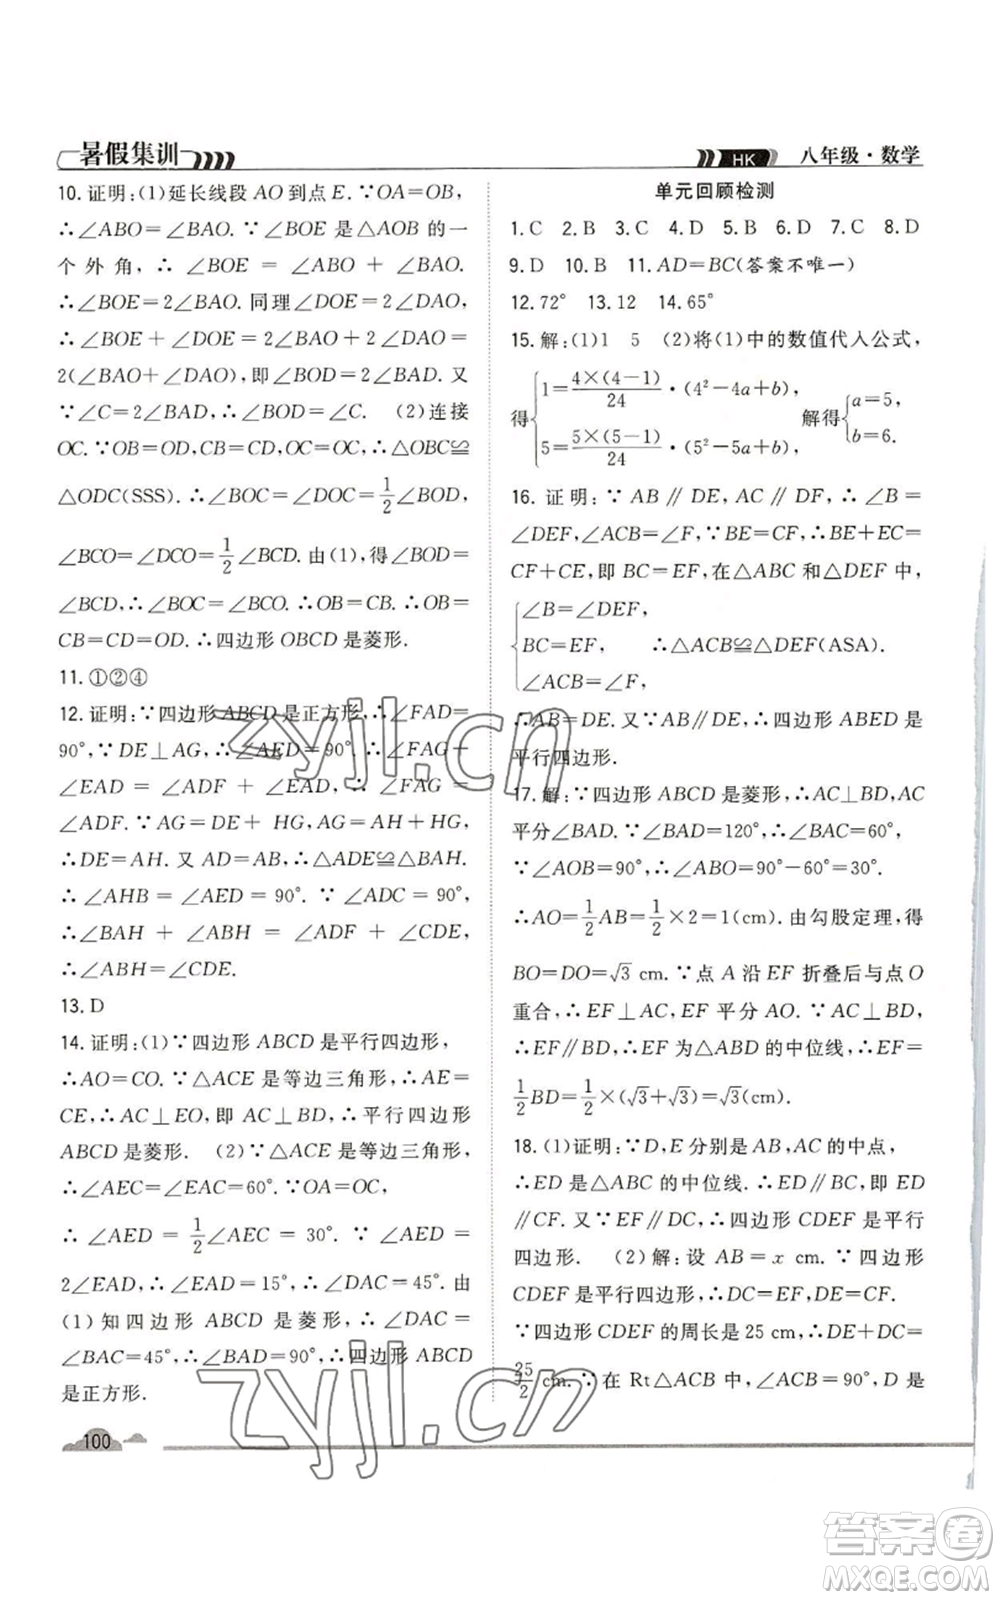 暑假集训
HK 八年级·数学
10. 证明:(1)延长线段 AO 到点 E. ∵OA=OB,
∴∠ABO=∠BAO. ∵∠BOE 是△AOB 的一
个外角,∴∠BOE = ∠ABO + ∠BAO.
∴∠BOE=2∠BAO. 同理∠DOE=2∠DAO.
∴∠BOE+∠DOE=2∠BAO+2∠DAO=
2(∠BAO+∠DAO),即∠BOD=2∠BAD. 又
∵∠C=2∠BAD,∴∠BOD=∠C. (2)连接
OC. ∵OB=OD,CB=CD,OC=OC,∴△OBC≌
△ODC(SSS). ∴∠BOC=∠DOC=1/2∠BOD,
∠BCO=∠DCO=1/2∠BCD. 由(1),得∠BOD=
∠BCD,∴∠BOC=∠BCO. ∴OB=CB. ∴OB=
CB=CD=OD. ∴四边形 OBCD 是菱形.
11. ①②④
12. 证明:∵四边形 ABCD 是正方形,∴∠FAD=
90°. ∵DE⊥AG,∴∠AED=90°. ∴∠FAG+
∠EAD = ∠ADF + ∠EAD. ∴∠FAG =
∠ADF. ∵AG=DE+HG,AG=AH+HG,
∴DE=AH. 又 AD=AB,∴△ADE≌△BAH.
∴∠AHB=∠AED=90°. ∵∠ADC=90°,
∴∠BAH + ∠ABH = ∠ADF + ∠CDE.
∴∠ABH=∠CDE.
13. D
14. 证明:(1)∵四边形 ABCD 是平行四边形,
∴AO=CO. ∵△ACE 是等边三角形,∴AE=
CE,∴AC⊥EO,即 AC⊥BD,∴平行四边形
ABCD 是菱形. (2)∵△ACE 是等边三角形,
∴∠AEC=∠EAC=60°. ∵OA=OC,
∴∠AED=1/2∠AEC=30°. ∵∠AED=
2∠EAD,∴∠EAD=15°,∴∠DAC=45°. 由
(1)知四边形 ABCD 是菱形,∴∠DAC=
∠BAC=45°,∴∠BAD=90°,∴四边形 ABCD
是正方形.
100
单元回顾检测
1. C 2. B 3. C 4. D 5. B 6. D 7. C 8. D
9. D 10. B 11. AD=BC(答案不唯一)
12. 72° 13. 12 14. 65°
15. 解:(1)1 5 (2)将(1)中的数值代入公式,
得{1=4×(4-1)/24·(4²-4a+b), 5=5×(5-1)/24·(5²-5a+b), 解得{a=5, b=6.
16. 证明:∵AB∥DE,AC∥DF,∴∠B=
∠DEF,∠ACB=∠F,∵BE=CF,∴BE+EC=
CF+CE,即 BC=EF,在△ABC 和△DEF 中,
∠B=∠DEF,
BC=EF, ∴△ACB≌△DEF(ASA).
∠ACB=∠F,
∴AB=DE. 又∵AB∥DE,∴四边形 ABED 是
平行四边形.
17. 解:∵四边形 ABCD 是菱形,∴AC⊥BD,AC
平分∠BAD. ∵∠BAD=120°,∴∠BAC=60°,
∵∠AOB=90°,∴∠ABO=90°-60°=30°.
∴AO=1/2AB=1/2×2=1(cm). 由勾股定理,得
BO=DO=√3 cm. ∵点 A 沿 EF 折叠后与点 O
重合,∴EF⊥AC,EF 平分 AO. ∵AC⊥BD,
∴EF∥BD,∴EF 为△ABD 的中位线,∴EF=
1/2BD=1/2×(√3+√3)=√3(cm).
18. (1)证明:∵D,E 分别是 AB,AC 的中点,
∴ED 是△ABC 的中位线. ∴ED∥BC,即 ED
∥CF. 又∵EF∥DC,∴四边形 CDEF 是平行
四边形. (2)解:设 AB=x cm. ∵四边形
CDEF 是平行四边形,∴DC=EF,DE=CF.
∵四边形 CDEF 的周长是 25 cm,∴DE+DC=
25/2 cm. ∵在 Rt△ACB 中,∠ACB=90°,D 是
zyjl.cn
zyjl.cn
答案圈
MXQE.COM